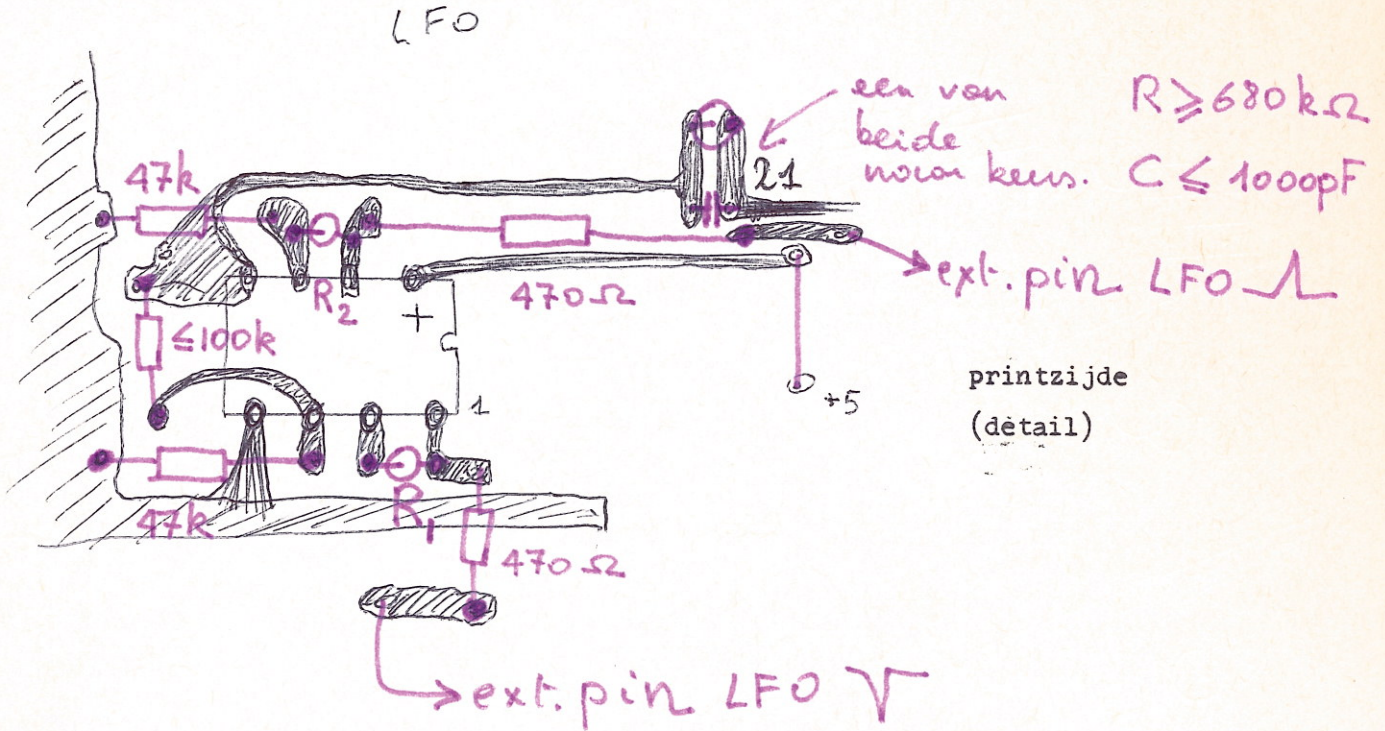 LFO
een van
beide
naar keus.
R ⩾ 680kΩ
C ⩽ 1000pF
21
47k
R2
470Ω
ext. pin LFO
+
⩽100k
1
+5
printzijde
(détail)
47k
R1
470Ω
ext. pin LFO